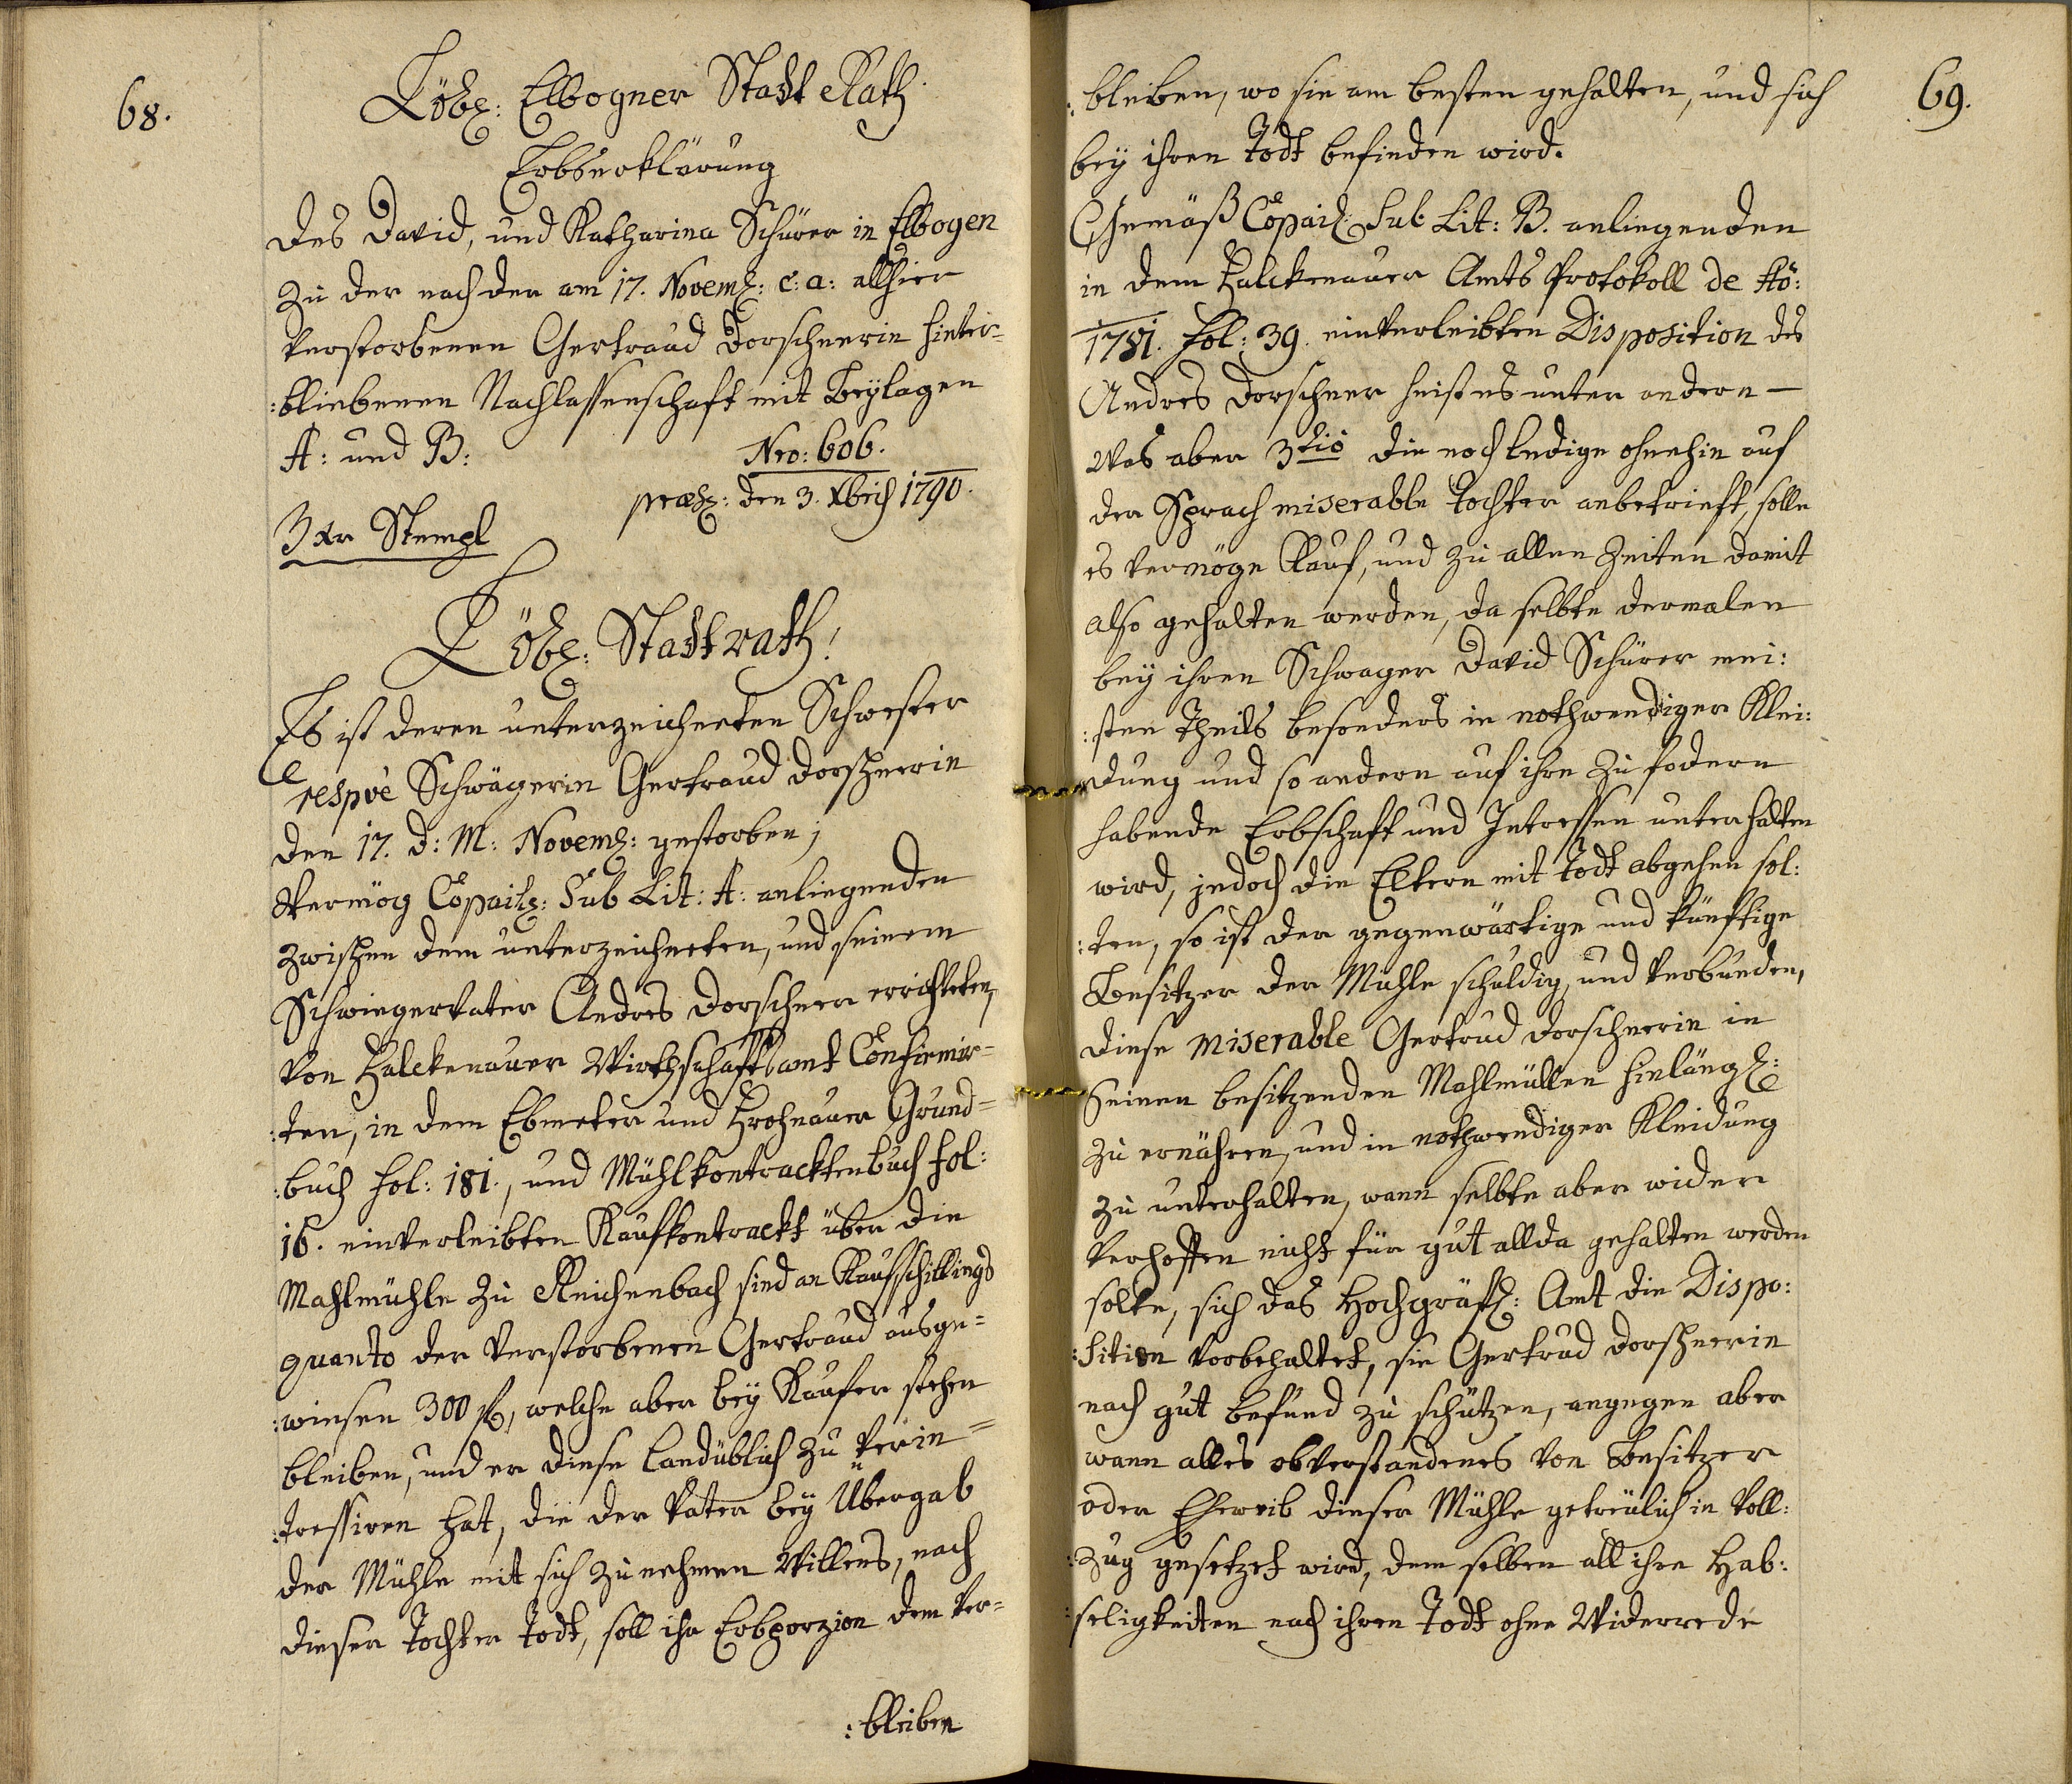 68.
Löbl: Elbogner Stadt Rath
Erbserklärung
Des David, und Katharina Schürer in Elbogen
zu der nach der am 17. Novemb: c: a: allhier
verstorbenen Gertraud Dorschnerin hinter-
:bliebenen Nachlassenschaft mit Beylagen
A: und B:
Nro: 606.
præs: den 3. Xbris 1790.
3 Xr Stempl
Löbl: Stadtrath!
Es ist deren unterzeichneten Schwester
respvè Schwägerin Gertraud Dorschnerin
den 17. d: M: Novemb: gestorben;
Vermög Copail: Sub Lit: A: anliegenden
zwischen dem unterzeichneten, und seinem
Schwiegervater Andres Dorschner errichteten,
von Falckenauer Wirthschaftsamt Confirmir=
:ten, in dem Ebmeter und Frohnauer Grund=
:buch fol: 181., und Mühlkontracktenbuch fol:
16. einverleibten Kaufkontrackt über die
Mahlmühle zu Reichenbach sind an Kaufschillings
quanto der verstorbenen Gertraud ausge=
:wiesen 300 f, welche aber bey Kaufer stehen
bleiben, und er diese landüblich zu verin=
:tressiren hat, die der Vater bey Übergab
der Mühle mit sich zu nehmen Willens, nach
dieser Tochter Todt, soll ihr Erbporzion dem ver-
:bleiben
69.
:bleiben, wo sie am besten gehalten, und sich
bey ihren Todt befinden wird.
Gemäß Copail: Sub Lit: B. anliegenden
in dem Falckenauer Amts Protokoll de Aõ:
1781. fol: 39. einverleibten Disposition des
Andres Dorschner heist es unter andern –
Was aber 3tiò die noch ledige ohnehin auf
der Sprach miserable Tochter anbetrieft, solle
es vermöge Kauf, und zu allen Zeiten damit
also gehalten werden, da selbte dermalen
bey ihren Schwager David Schürer mei:
:sten Theils besonders in nothwendiger Klei:
:dung und so andern auf ihre zu fodern
habende Erbschaft und Intressen unterhalten
wird, jedoch die Eltern mit Todt abgehen sol:
:ten, so ist der gegenwärtige und künftige
Besitzer der Mühle schuldig, und verbunden,
diese miserable Gertrud Dorschnerin in
Seinen besitzenden Mahlmüllen hinlängl:
zu ernähren, und in nothwendiger Kleidung
zu unterhalten, wann selbte aber wider
verhoffen nicht für gut allda gehalten werden
solte, sich das Hochgräfl: Amt die Dispo:
:sition vorbehaltet, sie Gertrud Dorschnerin
nach gut befund zu schützen, angegen aber
wann alles obverstandenes von Besitzer
oder Eheweib dieser Mühle getreulich in Voll:
:zug gesetzet wird, dem selben all ihre Hab:
:seligkeiten nach ihren Todt ohne Widerrede